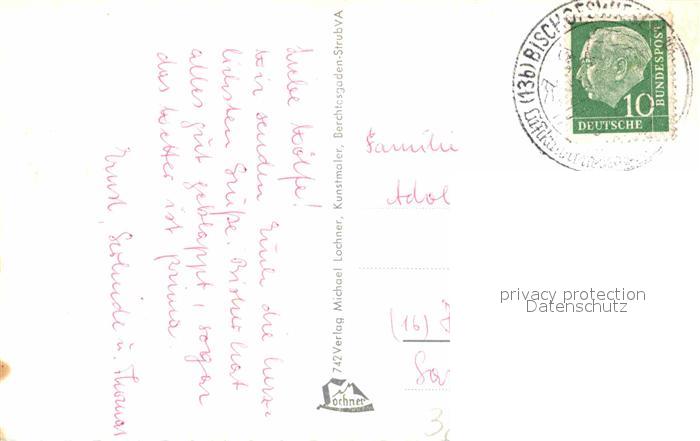 Liebe Wölfe!
Wir senden Euch die herz-
lichsten Grüße. Bisher hat
alles gut geklappt, sogar
das Wetter ist prima.
Ernst, Gerlinde u. Thomas
742 Verlag Michael Lochner, Kunstmaler, Berchtesgaden-Strub VA
Lochner
Familie
Adol
(16)
(13b) BISCHOFSWIE
10
DEUTSCHE
BUNDESPOST
privacy protection
Datenschutz